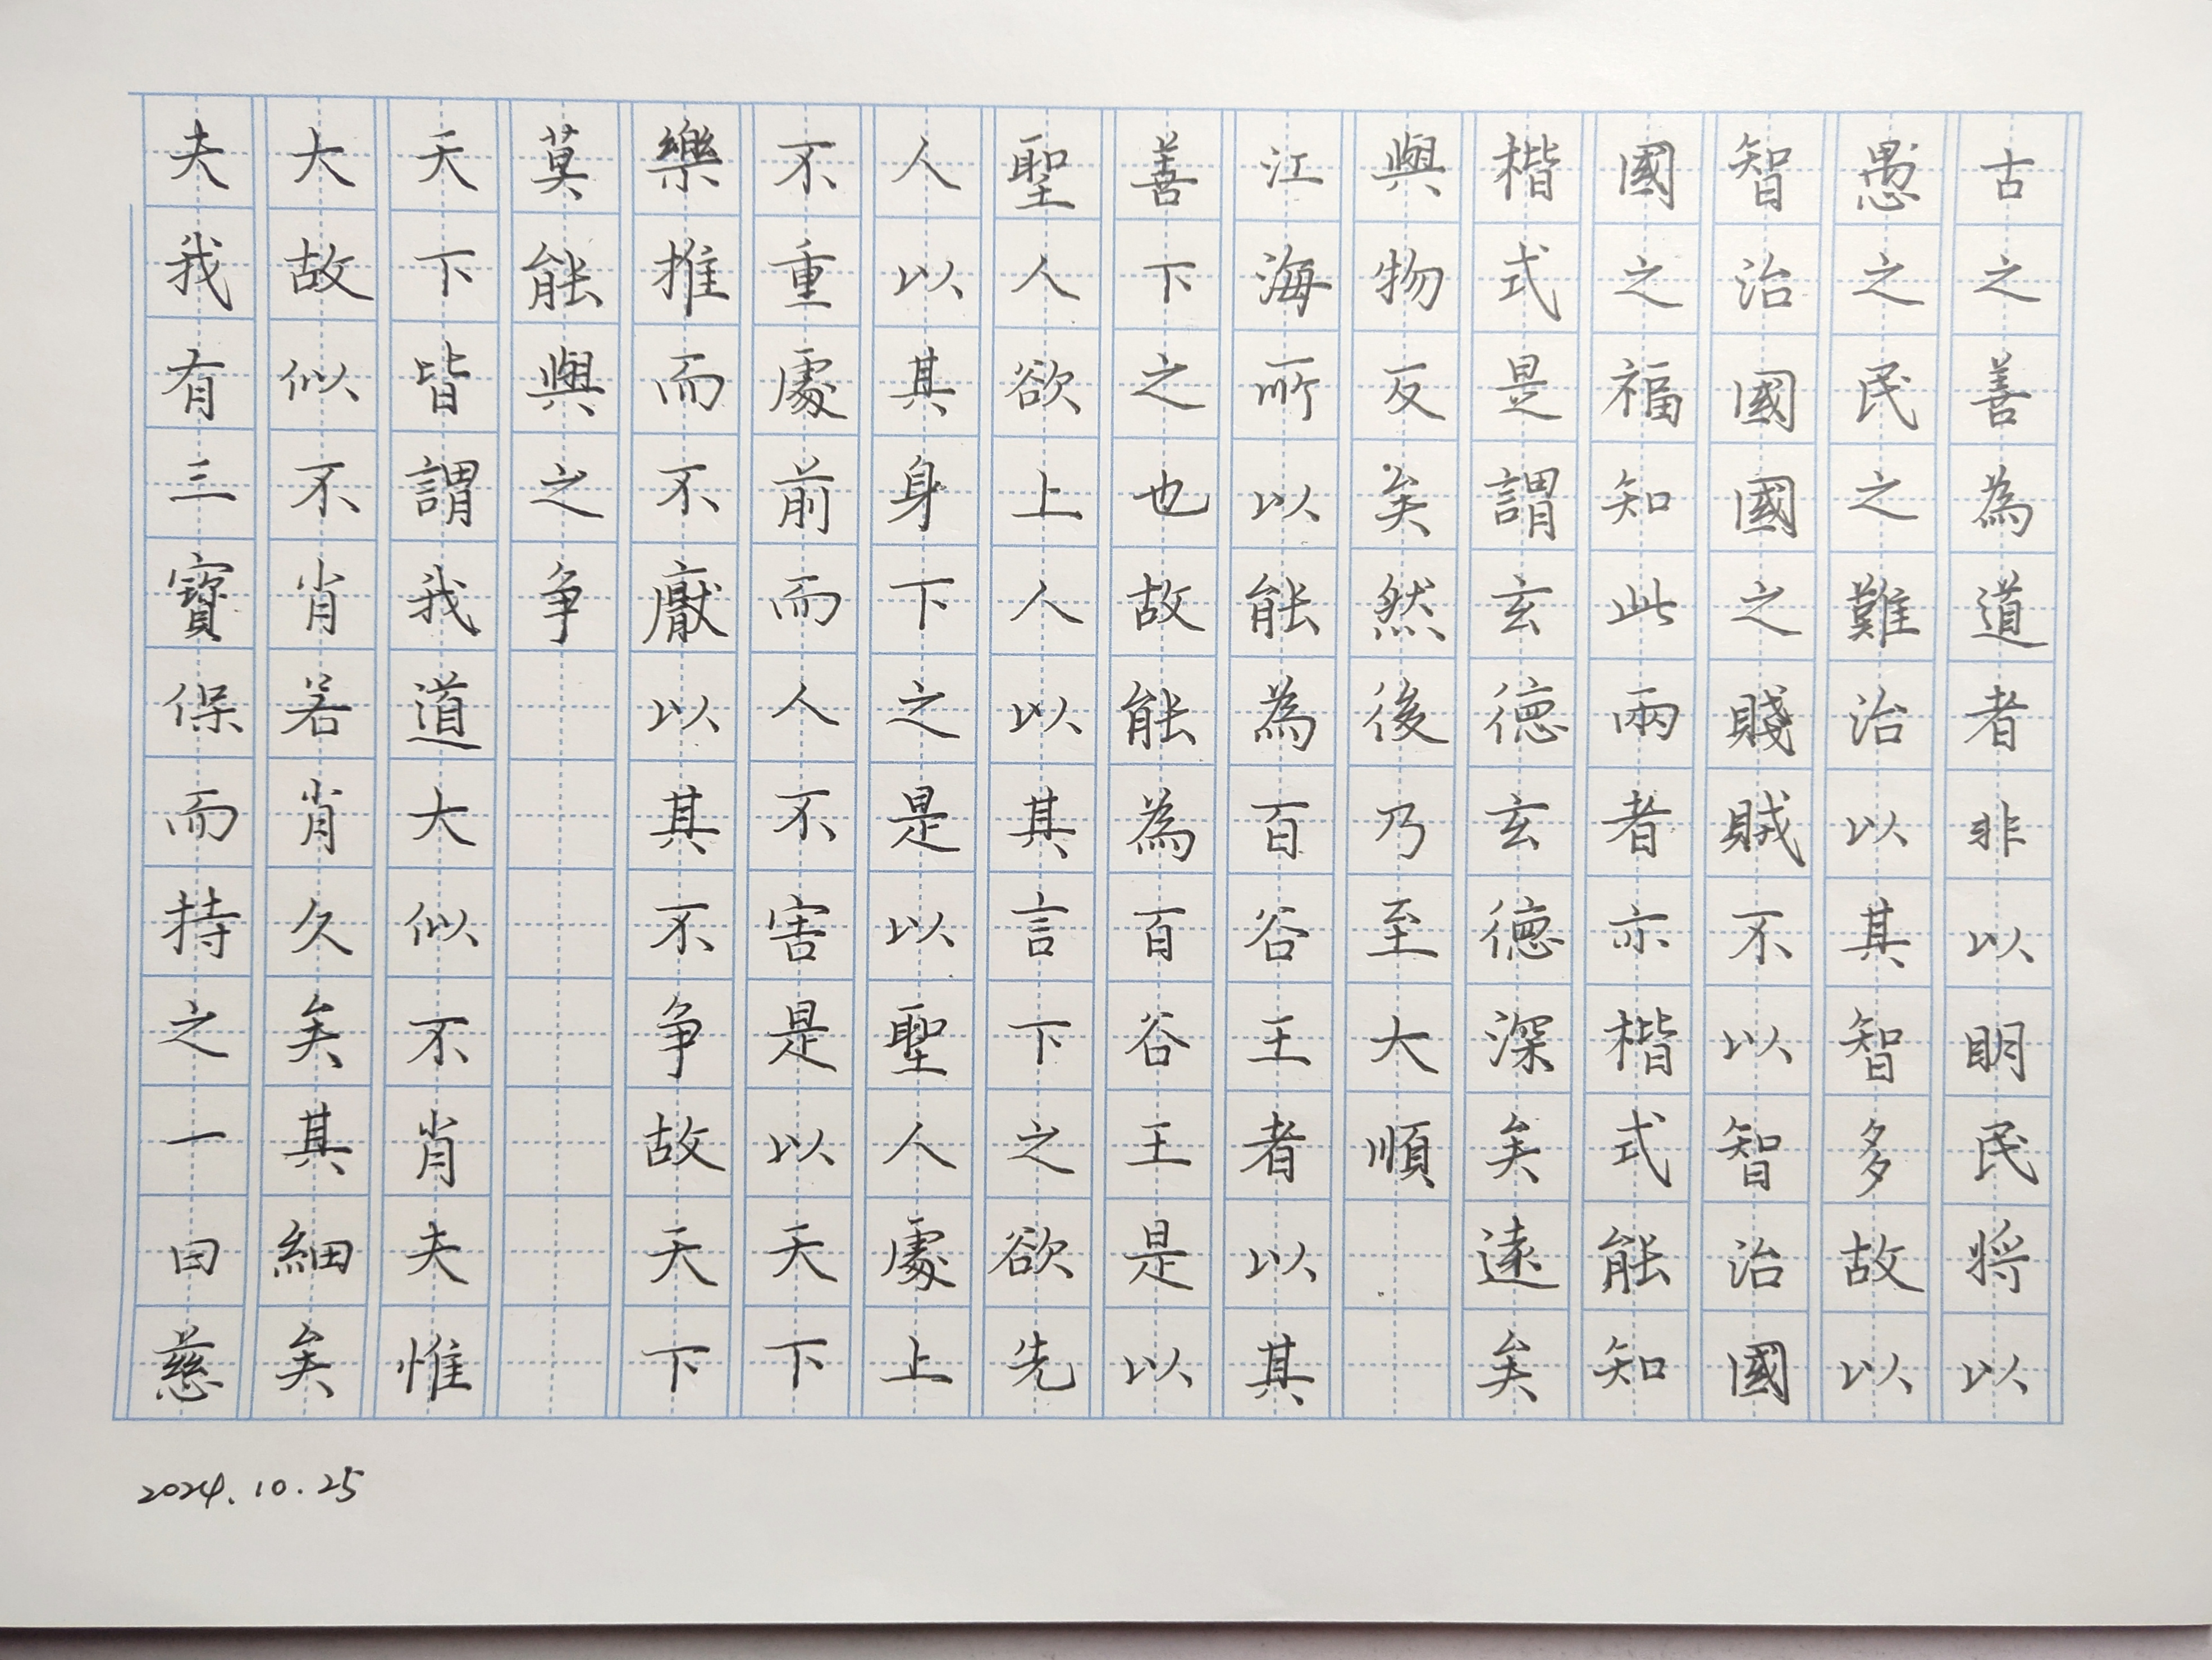 古之善為道者非以明民将以
愚之民之難治以其智多故以
智治國國之賤賊不以智治國
國之福知此兩者亦楷式能知
楷式是謂玄德玄德深矣遠矣
與物反矣然後乃至大順
江海所以能為百谷王者以其
善下之也故能為百谷王是以
聖人欲上人以其言下之欲先
人以其身下之是以聖人處上
不重處前而人不害是以天下
樂推而不厭以其不争故天下
莫能與之争
天下皆謂我道大似不肖夫惟
大故似不肖若肖久矣其細矣
夫我有三寶保而持之一曰慈
2024.10.25